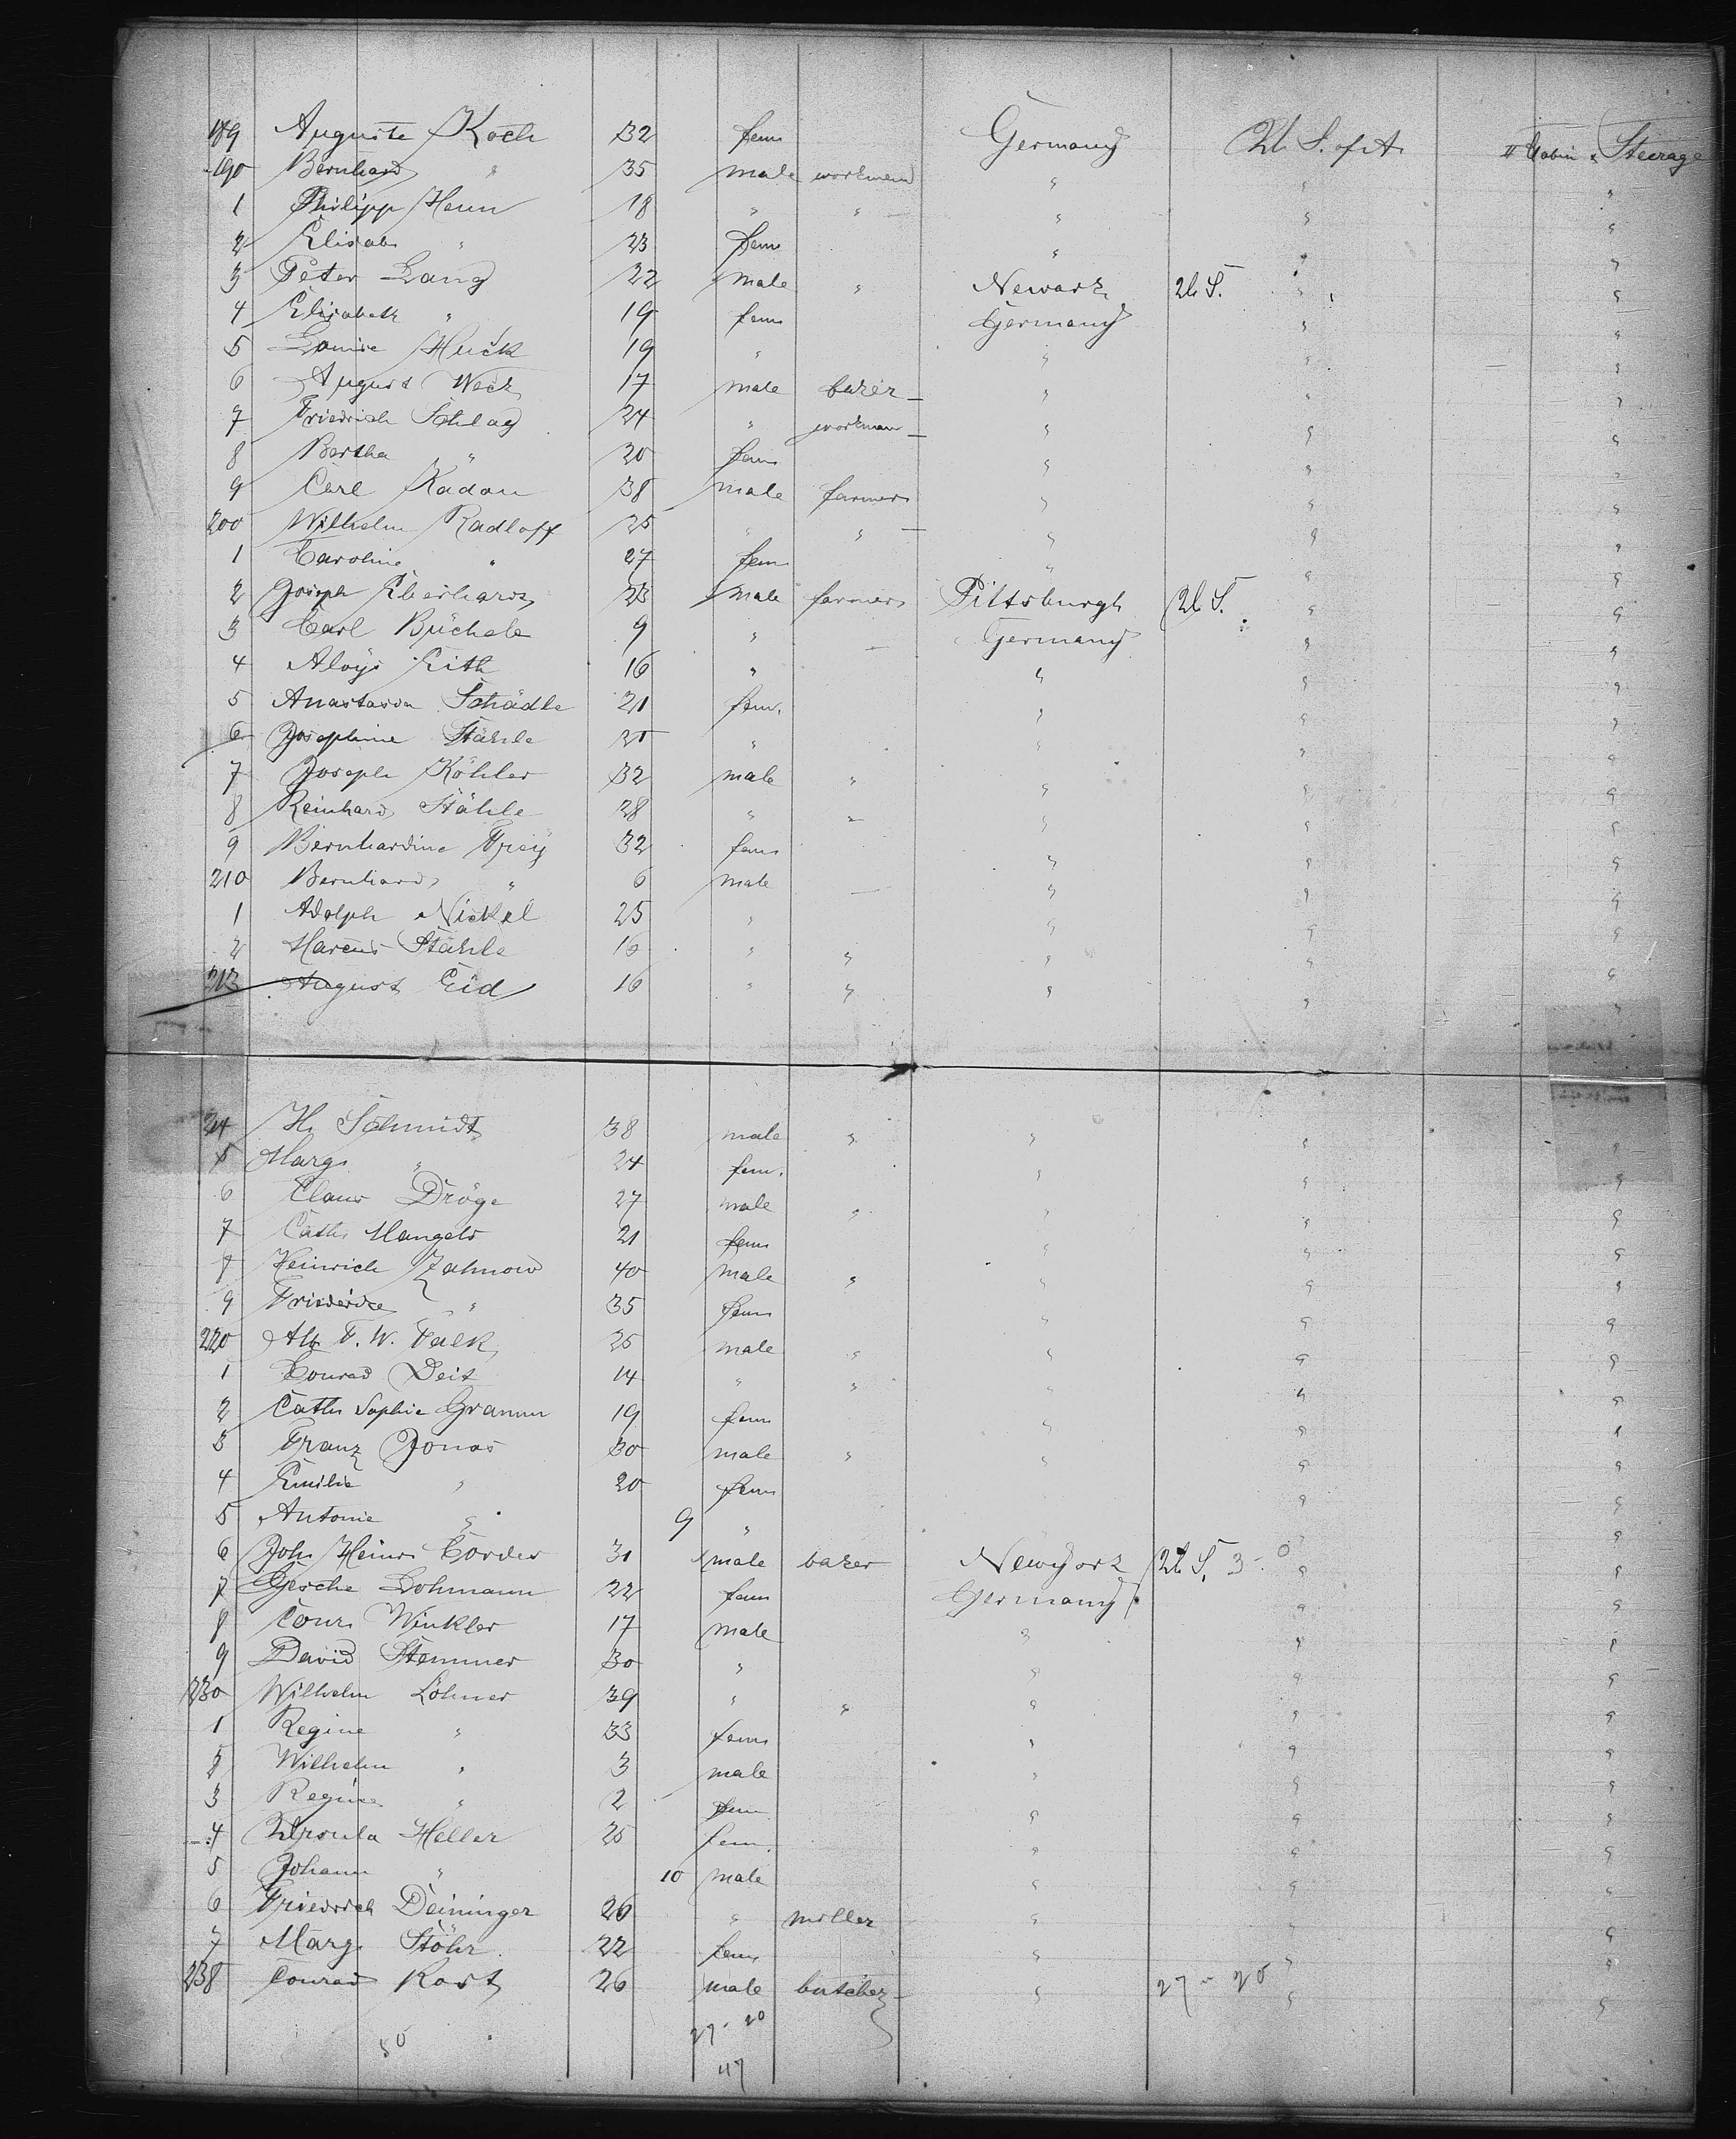 189 Auguste Koch 32 fem Germany U. S. of A. II Cabin & Steerage
190 Bernhard " 35 male workmen " " "
1 Philipp Henn 18 " " " " "
2 Elisab " 23 fem " " "
3 Peter Lang 22 male " Newark U. S. " "
4 Elisabeth " 19 fem Germany " "
5 Louise Huck 19 " " " "
6 August Weck 17 male baker " " "
7 Friedrich Schlag 24 " workman " " "
8 Bertha " 20 fem " " "
9 Carl Radau 38 male farmer " " "
200 Wilhelm Radloff 25 " " " " "
1 Caroline " 27 fem " " "
2 Joseph Eberhard 23 male farmer Pittsburgh U. S. " "
3 Carl Büchele 9 " Germany " "
4 Aloys Eith 16 " " " "
5 Anastasia Schädle 21 fem. " " "
6 Josephine Stähle " " " "
7 Joseph Köhler 32 male " " " "
8 Reinhard Stähle 28 " " " " "
9 Bernhardine Frey 32 fem " " "
210 Bernhard " 6 male " " "
1 Adolph Nickel 25 " " " "
2 Marcus Stähle 16 " " " " "
213 August Eid 16 " " " " "
214 H. Schmidt 38 male " " " "
5 Marg. " 24 fem. " " "
6 Claus Dröge 27 male " " " "
7 Cath. Mangels 21 fem " " "
8 Heinrich Zahnow 40 male " " " "
9 Friederike " 35 fem " " "
220 Alb. F. W. Falk 25 male " " " "
1 Conrad Deis 14 " " " " "
2 Cath. Sophie Gramm 19 fem " " "
3 Franz Jonas 30 male " " " "
4 Emilie " 20 fem " " "
5 Antonie " 9 " " "
6 Joh. Heinr. Cordes 31 male baker Newyork U. S. 3 - 0 " "
7 Gesche Lohmann 22 fem Germany " "
8 Conr. Winkler 17 male " " "
9 David Stemmer 30 " " " "
230 Wilhelm Löhner 39 " " " " "
1 Regine " 33 fem " " "
2 Wilhelm " 3 male " " "
3 Regine " 2 fem. " " "
4 Ursula Heller 25 fem. " " "
5 Johann " 10 male " " "
6 Friedrich Deininger 26 " miller " " "
7 Marg. Stöhr 22 fem " " "
238 Conrad Rost 26 male butcher " 27 - 20 " "
50 27 - 20
47